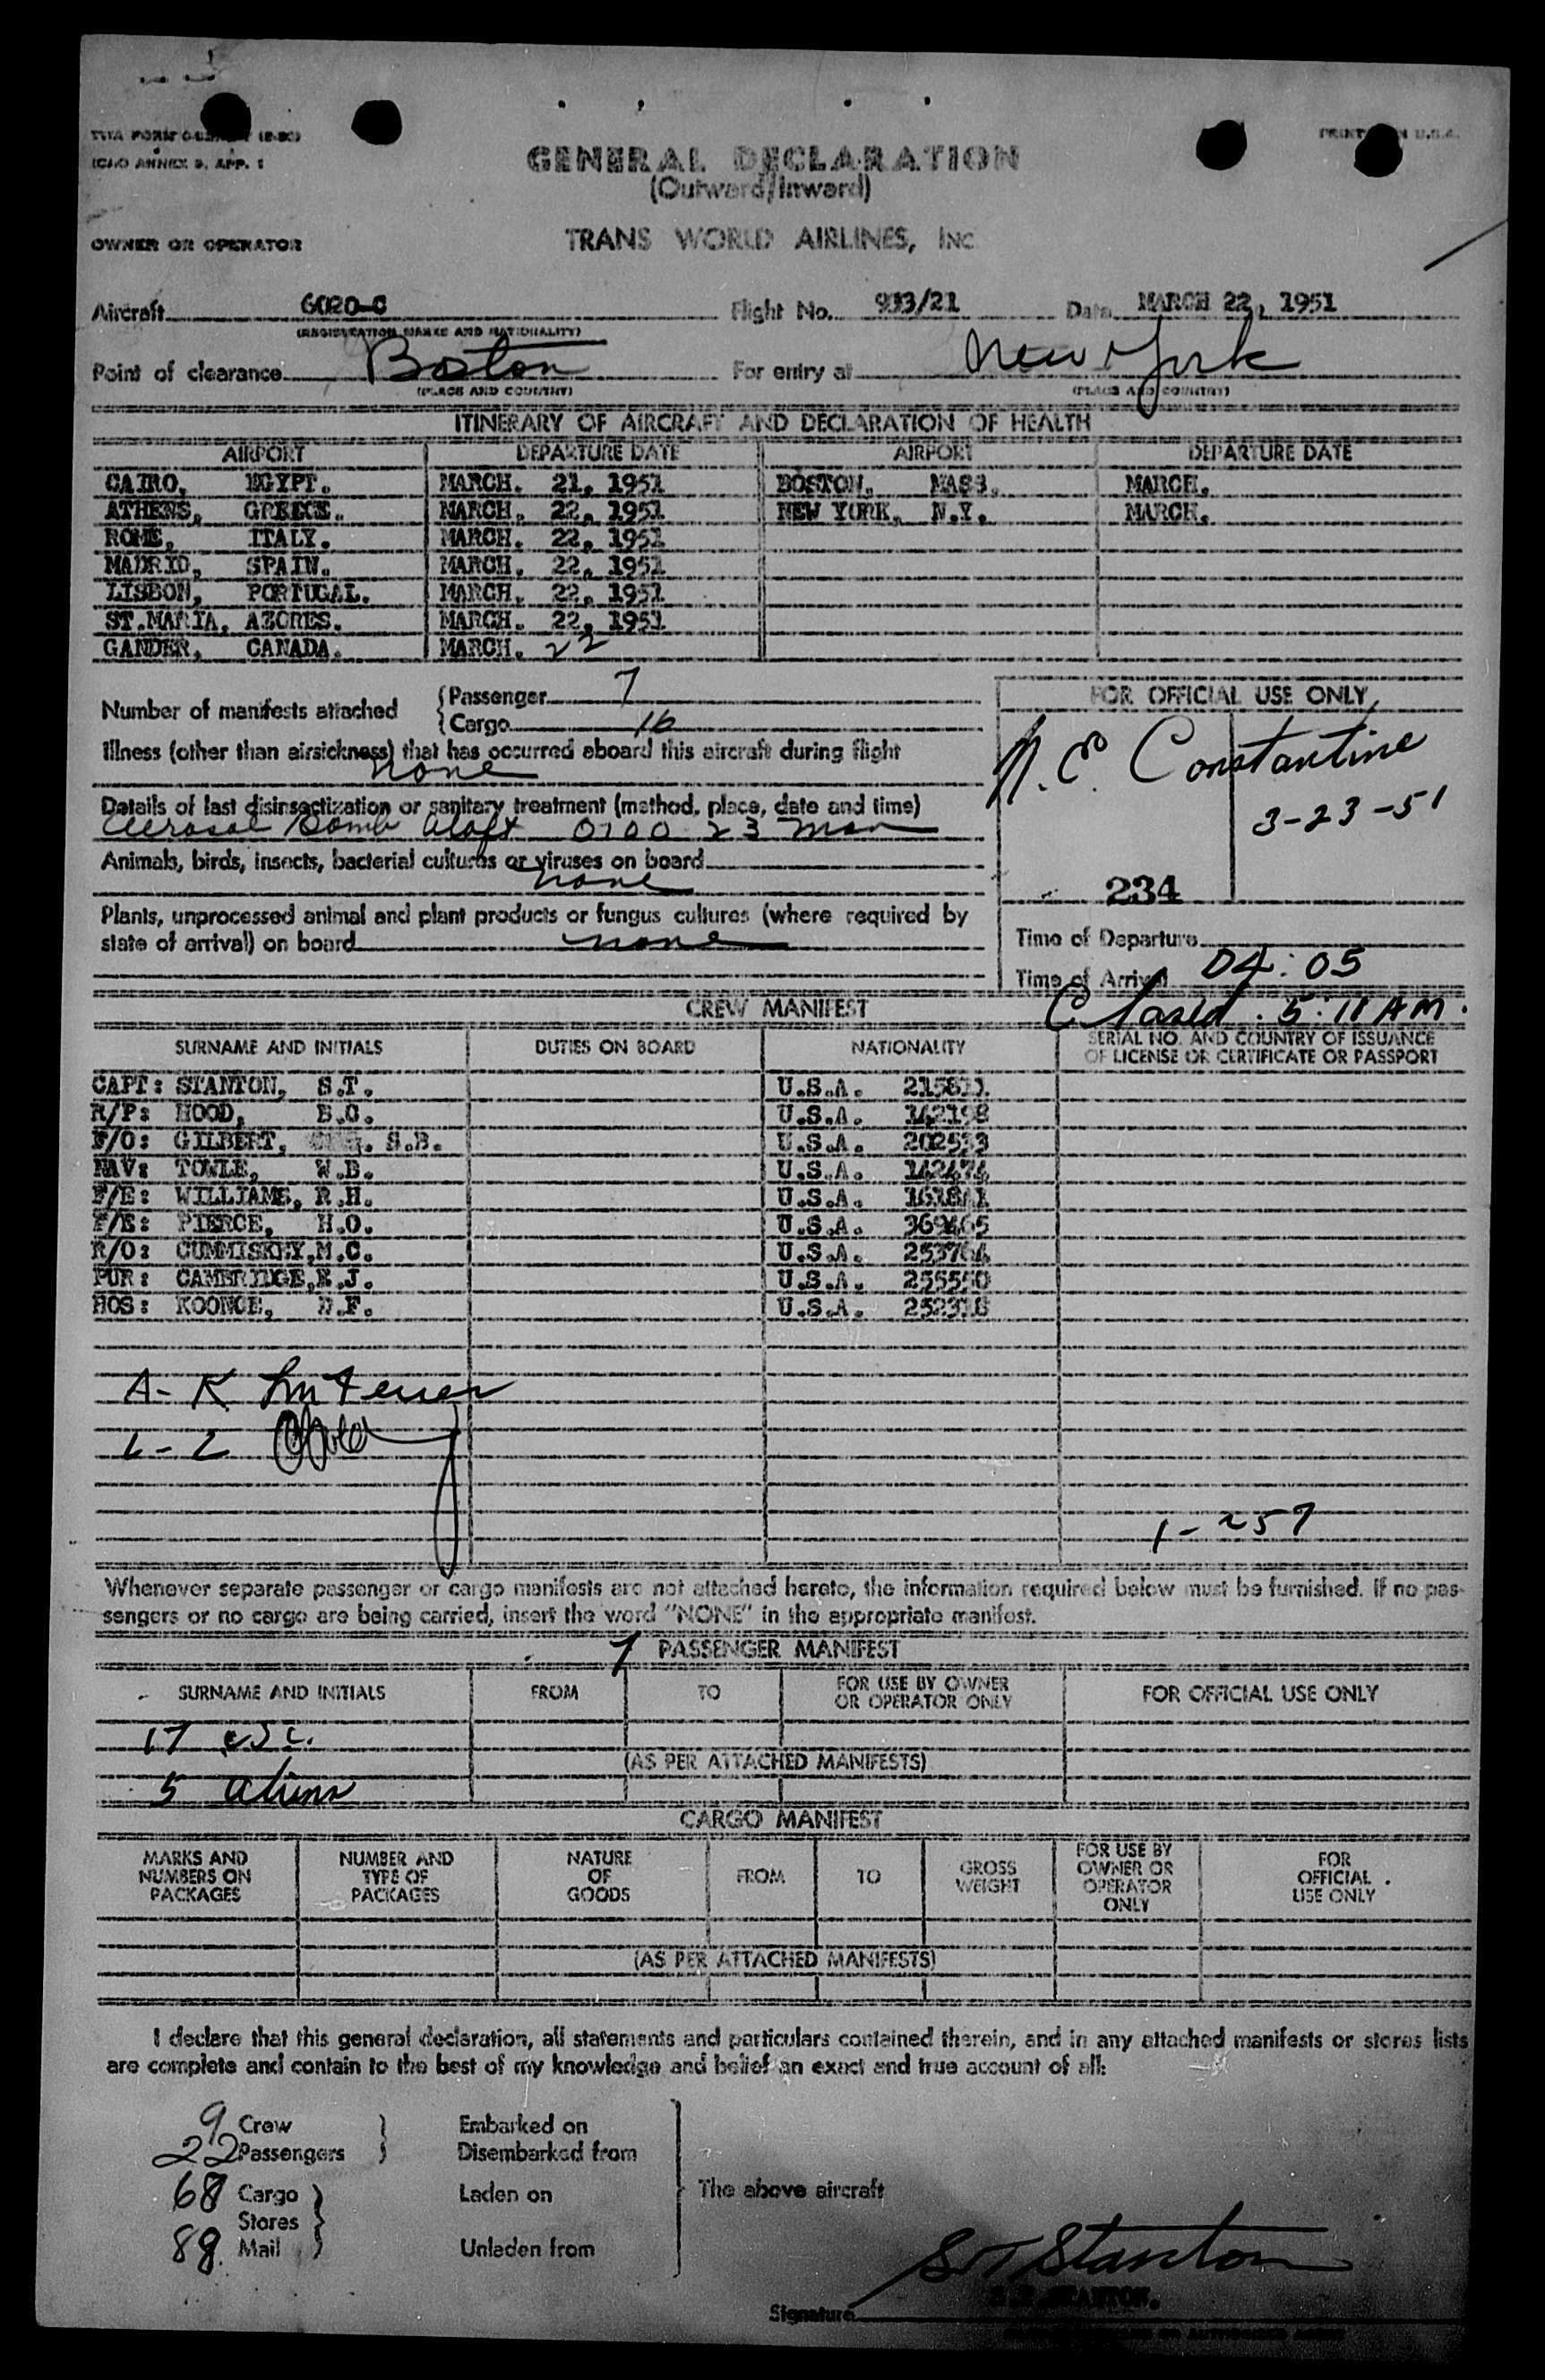 ICAO ANNEX 9, APP. 1
PRINTED IN U.S.A.
GENERAL DECLARATION
(Outward/Inward)
OWNER OR OPERATOR TRANS WORLD AIRLINES, INC
Aircraft 6020-C Flight No. 933/21 Date MARCH 22, 1951
(REGISTRATION MARKS AND NATIONALITY)
Point of clearance Boston For entry at New York
(PLACE AND COUNTRY) (PLACE AND COUNTRY)
ITINERARY OF AIRCRAFT AND DECLARATION OF HEALTH
AIRPORT DEPARTURE DATE AIRPORT DEPARTURE DATE
CAIRO, EGYPT. MARCH. 21, 1951 BOSTON, MASS. MARCH.
ATHENS, GREECE. MARCH. 22, 1951 NEW YORK, N.Y. MARCH.
ROME, ITALY. MARCH. 22, 1951
MADRID, SPAIN. MARCH. 22, 1951
LISBON, PORTUGAL. MARCH. 22, 1951
ST.MARIA, AZORES. MARCH. 22, 1951
GANDER, CANADA. MARCH. 22
Number of manifests attached
Passenger 7
Cargo 16
Illness (other than airsickness) that has occurred aboard this aircraft during flight
none
Details of last disinsectization or sanitary treatment (method, place, date and time)
Aerosol Bomb Aloft 0100 23 Mar
Animals, birds, insects, bacterial cultures or viruses on board
none
Plants, unprocessed animal and plant products or fungus cultures (where required by
state of arrival) on board none
FOR OFFICIAL USE ONLY
N.E. Constantine
3-23-51
234
Time of Departure
Time of Arrival 04:05
Closed. 5:11 AM.
CREW MANIFEST
SURNAME AND INITIALS DUTIES ON BOARD NATIONALITY SERIAL NO. AND COUNTRY OF ISSUANCE
OF LICENSE OR CERTIFICATE OR PASSPORT
CAPT: STANTON, S.T. U.S.A.
R/P: HOOD, B.O. U.S.A.
F/O: GILBERT, S.B. U.S.A.
NAV: TOWLE, W.B. U.S.A.
F/E: WILLIAMS, R.H. U.S.A.
F/E: PIERCE, H.O. U.S.A.
R/O: CUMMISKEY, M.C. U.S.A.
PUR: CAMBRIDGE, E.J. U.S.A.
HOS: KOONCE, D.F. U.S.A.
A-K
L-Z
1-257
Whenever separate passenger or cargo manifests are not attached hereto, the information required below must be furnished. If no pas-
sengers or no cargo are being carried, insert the word "NONE" in the appropriate manifest.
7 PASSENGER MANIFEST
SURNAME AND INITIALS FROM TO FOR USE BY OWNER
OR OPERATOR ONLY FOR OFFICIAL USE ONLY
17
(AS PER ATTACHED MANIFESTS)
5 Aliens
CARGO MANIFEST
MARKS AND
NUMBERS ON
PACKAGES
NUMBER AND
TYPE OF
PACKAGES
NATURE
OF
GOODS
FROM
TO
GROSS
WEIGHT
FOR USE BY
OWNER OR
OPERATOR
ONLY
FOR
OFFICIAL
USE ONLY
(AS PER ATTACHED MANIFESTS)
I declare that this general declaration, all statements and particulars contained therein, and in any attached manifests or stores lists
are complete and contain to the best of my knowledge and belief an exact and true account of all:
9 Crew Embarked on
22 Passengers Disembarked from
68 Cargo Laden on The above aircraft
Stores
89 Mail Unladen from
S T Stanton
S.T. STANTON.
Signature